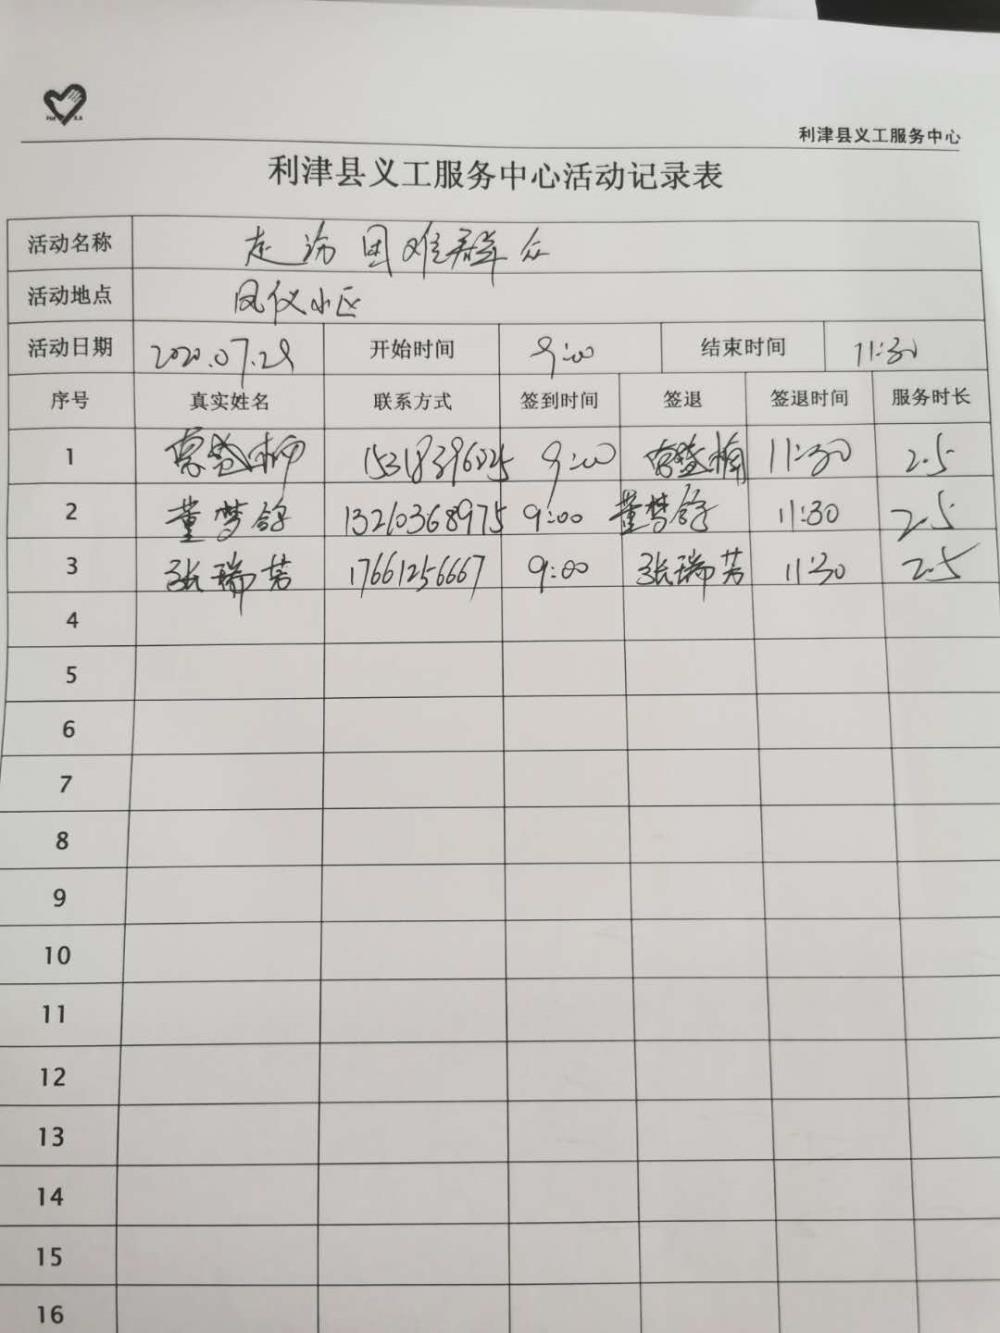 利津县义工服务中心
利津县义工服务中心活动记录表
活动名称 走访困难群众
活动地点 凤仪小区
活动日期 2020.07.29 开始时间 9:00 结束时间 11:30
序号 真实姓名 联系方式 签到时间 签退 签退时间 服务时长
1 15318396025 9:00 11:30 2.5
2 董梦鸽 13210368975 9:00 董梦鸽 11:30 2.5
3 张瑞芳 17661256667 9:00 张瑞芳 11:30 2.5
4
5
6
7
8
9
10
11
12
13
14
15
16